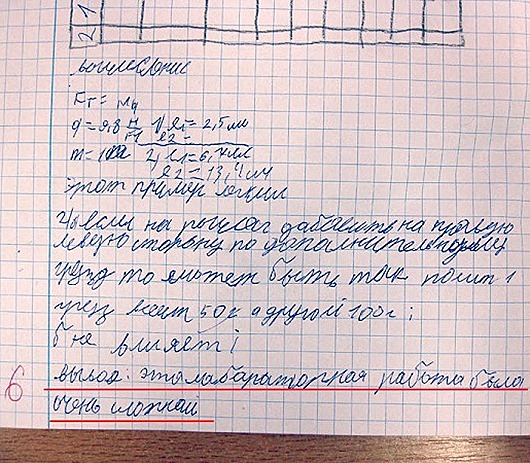 1
2
вычисление
Fт = mg
g = 9,8 Н 1) l1 = 2,5 см
кг l2 =
m = 100 2) l1 = 6,7 см
l2 = 13,4 см
этот пример легкий
если на рычаг дабавить на правую
левую сторону по дополнительному
грузу то может быть так 1
груз весит 50 г а другой 100 г;
б не влияет;
6
вывод: эта лабараторная работа была
очень сложнай